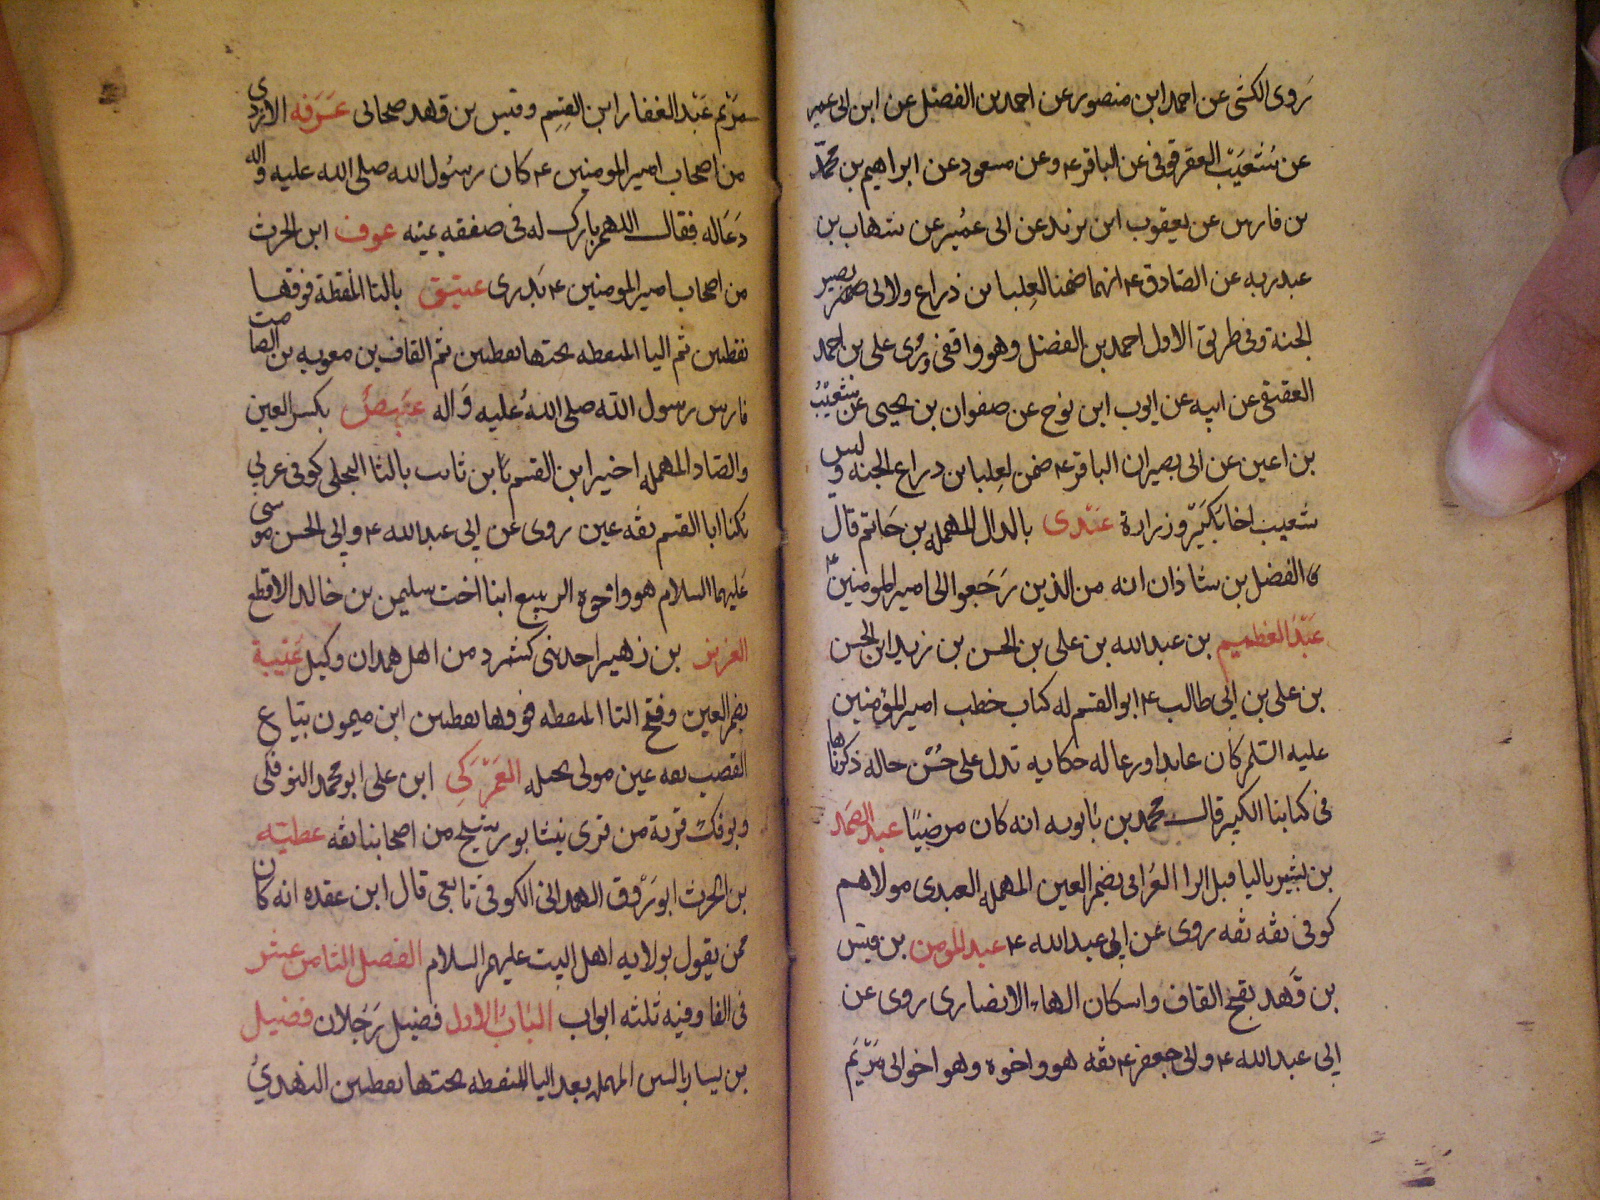 روى الكشى عن احمد ابن منصور عن احمد بن الفضل عن ابن ابى عمير
عن شعيب العقرقوفى عن الباقر ع وعن مسعود عن ابراهيم بن محمد
بن فارس عن يعقوب ابن يزيد عن ابى عمير عن شهاب بن
عبد ربه عن الصادق ع انهما ضمنا لعلبا بن ذراع ولابى بصير
الجنة وفى طريق الاول احمد بن الفضل وهو واقفى وروى على بن احمد
العقيقى عن ابيه عن ايوب ابن نوح عن صفوان بن يحيى عن شعيب
بن اعين عن ابى بصير ان الباقر ع ضمن لعلبا بن دراع الجنه وليس
شعيب اخا بكير وزرارة عدى بالدال المهمله بن حاتم قال
الفضل بن شاذان انه من الذين رجعوا الى امير المومنين ع
عبد العظيم بن عبد الله بن على بن الحسن بن زيد ابن الحسن
بن على بن ابى طالب ع ابو القسم له كتاب خطب امير المؤمنين
عليه السلم كان عابدا ورعا له حكايه تدل على حسن حاله ذكرناها
فى كتابنا الكبير قال محمد بن بابويه انه كان مرضيا عبد الصمد
بن بشير باليا قبل الرا العرامى بضم العين المهمله العبدى مولاهم
كوفى ثقه ثقه روى عن ابى عبد الله ع عبد المومن بن قيس
بن قهد بفتح القاف واسكان الهاء الانصارى روى عن
ابى عبد الله ع وابى جعفر ع ثقه هو واخوه وهو اخو ابى مريم
مريم عبد الغفار ابن القسم وقيس بن قهد صحابى عرفه الازدى
من اصحاب امير المومنين ع كان رسول الله صلى الله عليه واله
دعا له فقال اللهم بارك له فى صفقه يمينه عوف ابن الحرث
من اصحاب امير المومنين ع بدرى عتيق بالتا المنقطة فوقها
نقطتين ثم اليا المنقطه تحتها نقطتين ثم القاف بن معويه بن الصامت
فارس رسول الله صلى الله عليه واله عيص بكسر العين
والصاد المهمله اخيرا ابن القسم بن ثابت بالثا البجلى كوفى عربى
يكنا ابا القسم ثقه عين روى عن ابى عبد الله ع وابى الحسن موسى
عليهما السلام هو واخوه الربيع ابنا اخت سليمن بن خالد الاقطع
العزيز بن زهير احد بنى كشمرد من اهل همدان وكيل عتيبة
بضم العين وفتح التا المنقطه فوقها نقطتين ابن ميمون بياع
القصب ثقه عين مولى بجيله العمركى ابن على ابو محمد البوفكى
وبوفك قرية من قرى نيشابور شيخ من اصحابنا ثقه عطيه
بن الحرث ابو روق الهمدانى الكوفى تابعى قال ابن عقده انه كان
ممن يقول بولايه اهل البيت عليهم السلام الفصل الثامن عشر
فى الفا وفيه ثلثه ابواب الباب الاول فضيل رجلان فضيل
بن يسار بالسين المهمله بعد اليا المنقطه تحتها نقطتين النهدى